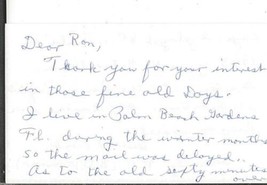 Dear Ron,
Thank you for your interest
in those fine old Days.
I live in Palm Beach Gardens
Fl. during the winter months
so the mail was delayed..
As to the old sefty minutes
over